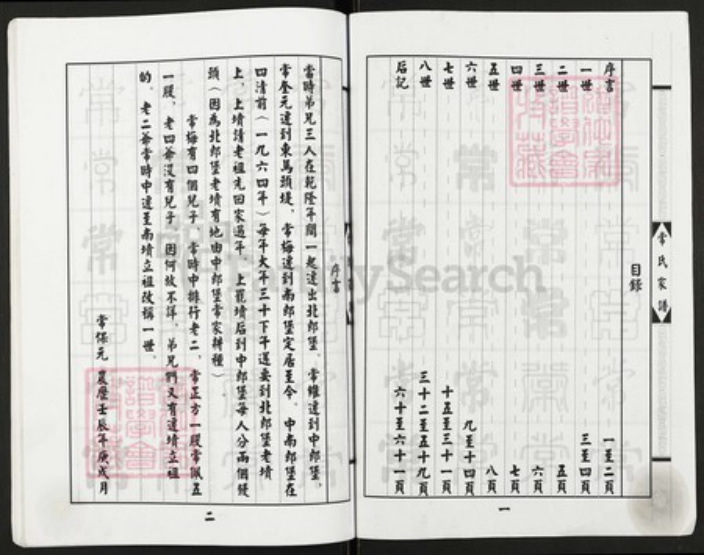 常氏家譜
目錄
序言 一至二頁
一世 三至四頁
二世 五頁
三世 六頁
四世 七頁
五世 八頁
六世 九至十四頁
七世 十五至三十一頁
八世 三十二至五十九頁
后記 六十至六十一頁
一
序言
當時弟兄三人在乾隆年間一起遷出北郎堡。常維遷到中郎堡，
常奎元遷到東馬頭堤，常梅遷到南郎堡定居至今。中南郎堡在
四清前（一九六四年）每年大年三十下午還要到北郎堡老墳
上，上墳請老祖先回家過年。上罷墳后到中郎堡每人分兩個饅
頭（因為北郎堡老墳有地由中郎堡常家耕種）。
常梅有四個兒子，常時中排行老二，常正方一股常佩五
一股，老四爺沒有兒子，因何故不詳。弟兄們又有遷墳立祖
的。老二爺常時中遷至南墳立祖改稱一世。
常保元 農歷壬辰年庚戌月
二
FamilySearch